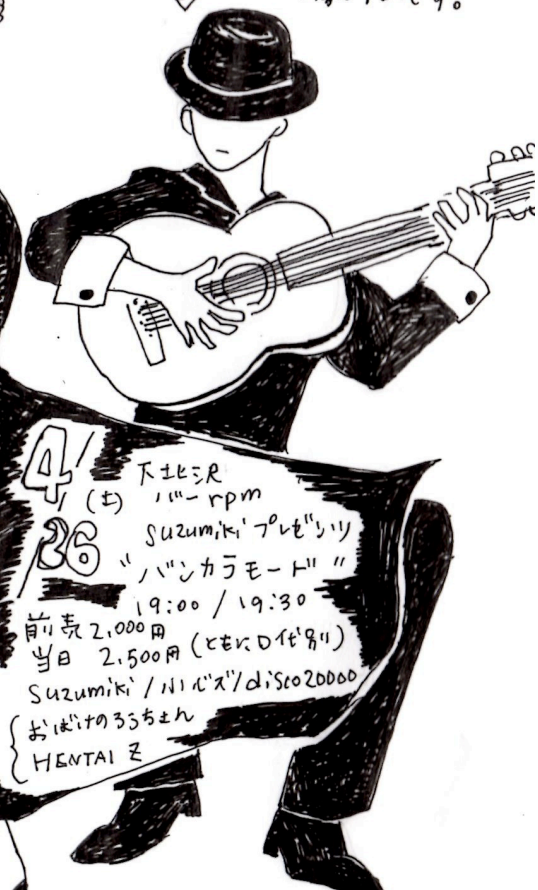 です。
4/26
(土)
下北沢
バー rpm
suzumiki プレゼンツ
"バンカラモード"
19:00 / 19:30
前売 2,000円
当日 2,500円 (ともにD代別)
suzumiki / 小心ズ / disco20000
おばけのろろちょん
HENTAI Z